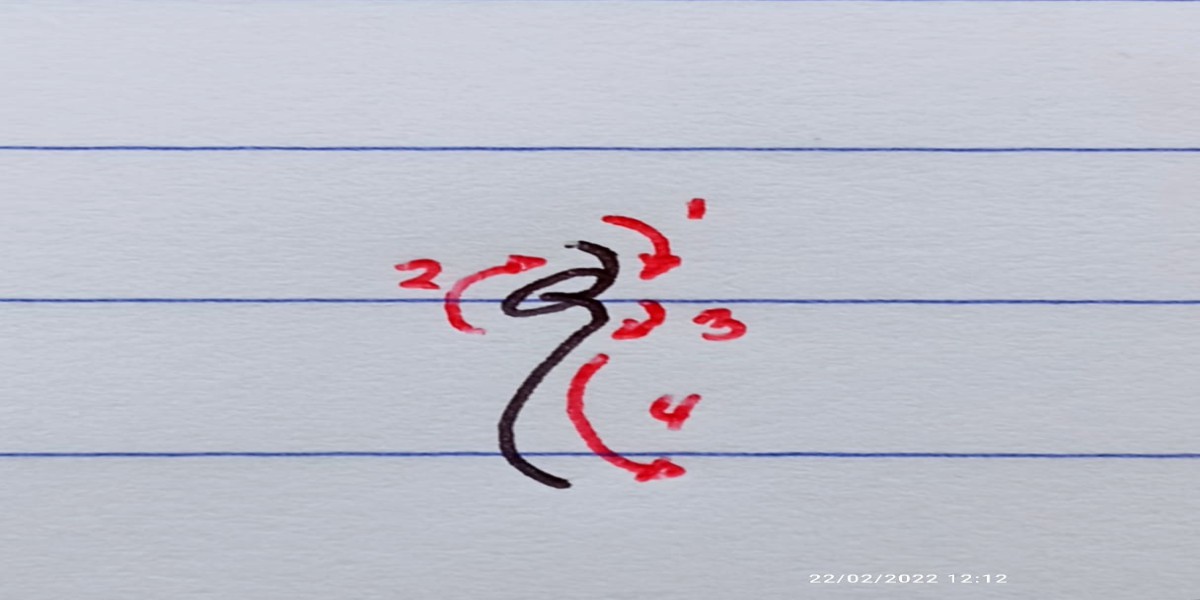 1
2
3
4
22/02/2022 12:12